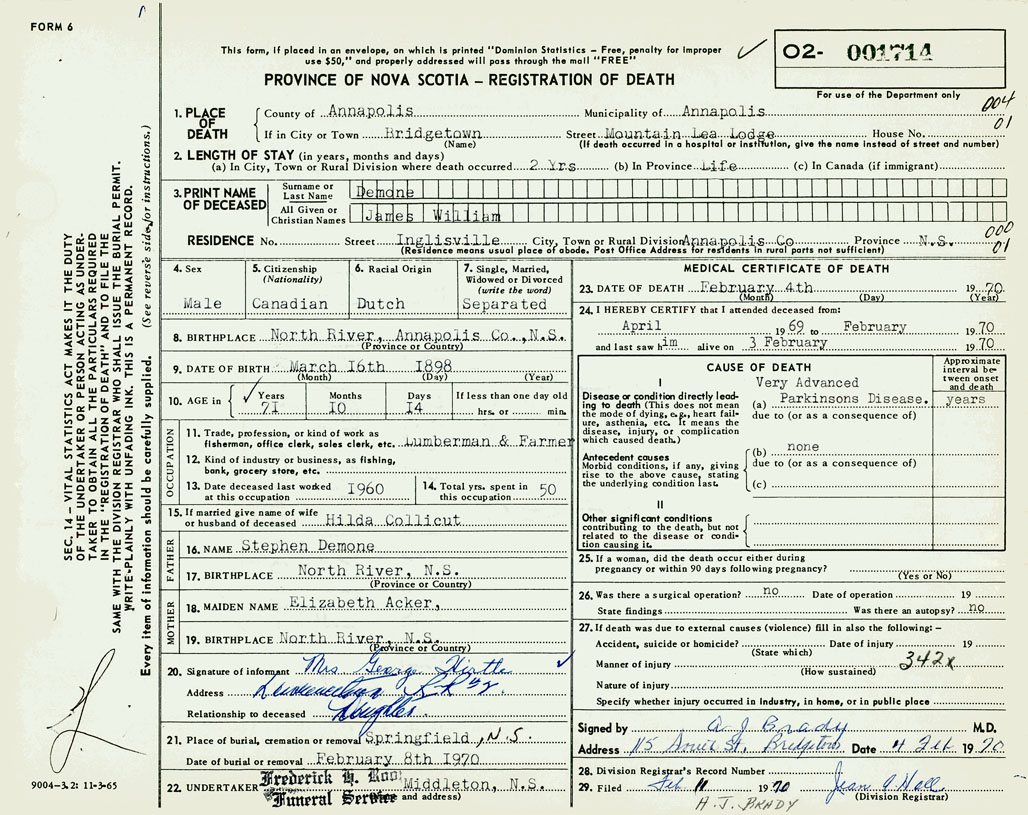 FORM 6
This form, if placed in an envelope, on which is printed "Dominion Statistics – Free, penalty for improper
use $50," and properly addressed will pass through the mail "FREE"
PROVINCE OF NOVA SCOTIA – REGISTRATION OF DEATH
O2- 001714
For use of the Department only
004
01
1. PLACE OF DEATH
County of Annapolis Municipality of Annapolis
If in City or Town Bridgetown Street Mountain Lea Lodge House No.
(Name) (If death occurred in a hospital or institution, give the name instead of street and number)
2. LENGTH OF STAY (in years, months and days)
(a) In City, Town or Rural Division where death occurred 2 Yrs (b) In Province Life (c) In Canada (if immigrant)
3. PRINT NAME OF DECEASED
Surname or Last Name Demone
All Given or Christian Names James William
RESIDENCE No. Street Inglisville City, Town or Rural Division Annapolis Co Province N.S.
(Residence means usual place of abode. Post Office Address for residents in rural parts not sufficient)
000
01
4. Sex
Male
5. Citizenship
(Nationality)
Canadian
6. Racial Origin
Dutch
7. Single, Married,
Widowed or Divorced
(write the word)
Separated
8. BIRTHPLACE North River, Annapolis Co., N.S.
(Province or Country)
9. DATE OF BIRTH March I6th I898
(Month) (Day) (Year)
10. AGE in
Years Months Days If less than one day old
7I I0 I4 hrs. or min.
OCCUPATION
11. Trade, profession, or kind of work as
fisherman, office clerk, sales clerk, etc. Lumberman & Farmer
12. Kind of industry or business, as fishing,
bank, grocery store, etc.
13. Date deceased last worked
at this occupation I960
14. Total yrs. spent in
this occupation 50
15. If married give name of wife
or husband of deceased Hilda Collicut
FATHER
16. NAME Stephen Demone
17. BIRTHPLACE North River, N.S.
(Province or Country)
MOTHER
18. MAIDEN NAME Elizabeth Acker,
19. BIRTHPLACE North River, N.S.
(Province or Country)
20. Signature of informant Mrs George Hirtle
Address R.R #2
Relationship to deceased Daughter
21. Place of burial, cremation or removal Springfield, N.S.
Date of burial or removal February 8th I970
22. UNDERTAKER Frederick H. Roop
Funeral Service Middleton, N.S.
and address)
MEDICAL CERTIFICATE OF DEATH
23. DATE OF DEATH February 4th 19 70
(Month) (Day) (Year)
24. I HEREBY CERTIFY that I attended deceased from:
April 19 69 to February 19 70
and last saw him alive on 3 February 19 70
CAUSE OF DEATH
Approximate interval between onset and death
I
Disease or condition directly leading to death (This does not mean the mode of dying, e.g., heart failure, asthenia, etc. It means the disease, injury, or complication which caused death.)
Very Advanced
(a) Parkinsons Disease. years
due to (or as a consequence of)
Antecedent causes
Morbid conditions, if any, giving rise to the above cause, stating the underlying condition last.
(b) none
due to (or as a consequence of)
(c)
II
Other significant conditions
contributing to the death, but not related to the disease or condition causing it.
25. If a woman, did the death occur either during
pregnancy or within 90 days following pregnancy?
(Yes or No)
26. Was there a surgical operation? no Date of operation 19
State findings Was there an autopsy? no
27. If death was due to external causes (violence) fill in also the following: –
Accident, suicide or homicide? Date of injury 19
(State which)
Manner of injury 342x
(How sustained)
Nature of injury
Specify whether injury occurred in Industry, in home, or in public place
Signed by A J Brady M.D.
Address 115 St. Bridgetown Date 4 Feb 19 70
28. Division Registrar's Record Number
29. Filed Feb 11 19 70 Jean A Hall
(Division Registrar)
A. J. BRADY
SEC. 14 – VITAL STATISTICS ACT MAKES IT THE DUTY
OF THE UNDERTAKER OR PERSON ACTING AS UNDER-
TAKER TO OBTAIN ALL THE PARTICULARS REQUIRED
IN THE "REGISTRATION OF DEATH" AND TO FILE THE
SAME WITH THE DIVISION REGISTRAR WHO SHALL ISSUE THE BURIAL PERMIT.
WRITE PLAINLY WITH UNFADING INK. THIS IS A PERMANENT RECORD.
Every item of information should be carefully supplied. (See reverse side for instructions.)
9004-3.2: 11-3-65